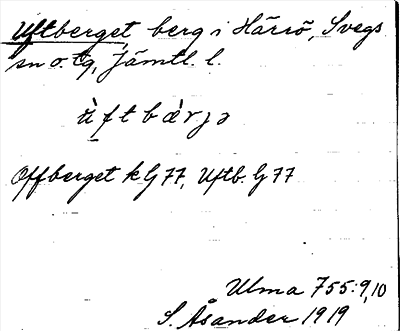 Uftberget berg i Härrö, Svegs
sn o. tg, Jämtl. l.
ùftbæ̀rjə
Offberget k G 77, Uftb. G 77
Ulma 755:9,10
S. Åsander 1919